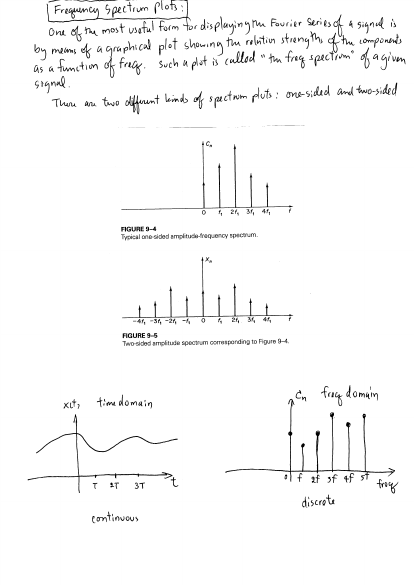 Frequency Spectrum Plots:
One of the most useful form for displaying the Fourier Series of a signal is
by means of a graphical plot showing the relative strengths of the components
as a function of freq. Such a plot is called "the freq spectrum" of a given
signal.
There are two different kinds of spectrum plots: one-sided and two-sided
Cn
0 f₁ 2f₁ 3f₁ 4f₁ f
FIGURE 9-4
Typical one-sided amplitude-frequency spectrum.
Xn
-4f₁ -3f₁ -2f₁ -f₁ 0 f₁ 2f₁ 3f₁ 4f₁ f
FIGURE 9-5
Two-sided amplitude spectrum corresponding to Figure 9-4.
x(t) time domain
T 2T 3T t
continuous
Cn freq domain
0 f 2f 3f 4f 5f freq
discrete